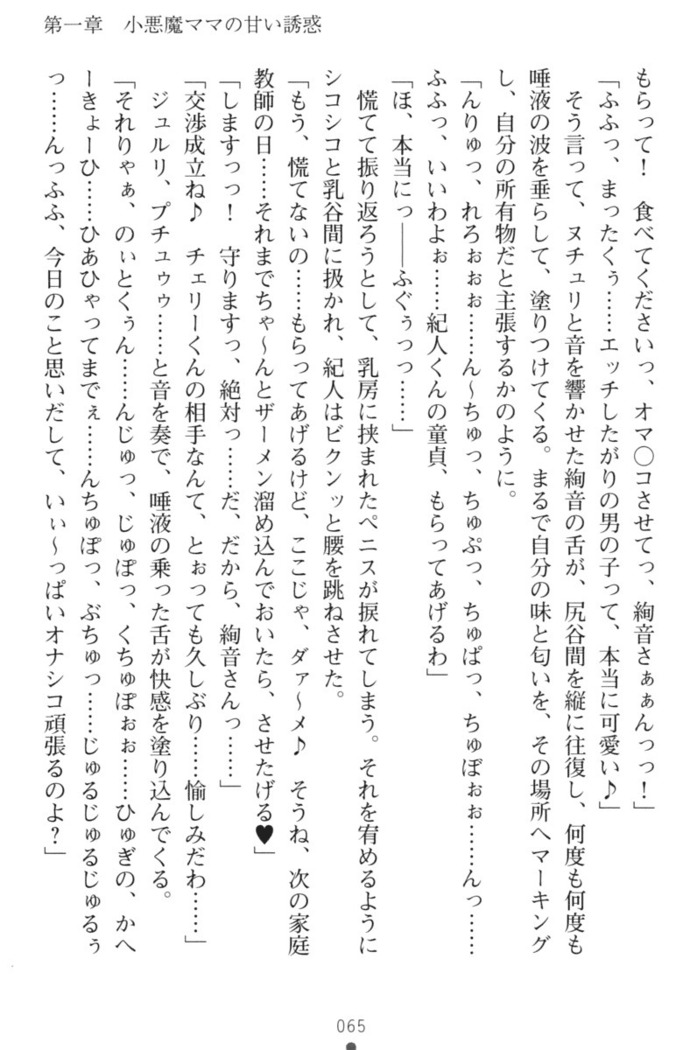 第一章　小悪魔ママの甘い誘惑
もらって！　食べてくださいっ、オマ〇コさせてっ、絢音さぁぁんっっ！」
「ふふっ、まったくぅ……エッチしたがりの男の子って、本当に可愛い♪」
そう言って、ヌチュリと音を響かせた絢音の舌が、尻谷間を縦に往復し、何度も何度も
唾液の波を垂らして、塗りつけてくる。まるで自分の味と匂いを、その場所へマーキング
し、自分の所有物だと主張するかのように。
「んりゅっ、れろぉぉぉ……ん～ちゅっ、ちゅぷっ、ちゅぱっ、ちゅぽぉぉ……んっ……
ふふっ、いいわよぉ……紀人くんの童貞、もらってあげるわ」
「ほ、本当にっ――ふぐぅっっ……」
慌てて振り返ろうとして、乳房に挟まれたペニスが捩れてしまう。それを宥めるように
シコシコと乳谷間に扱かれ、紀人はビクンッと腰を跳ねさせた。
「もう、慌てないの……もらってあげるけど、ここじゃ、ダァ～メ♪　そうね、次の家庭
教師の日……それまでちゃ～んとザーメン溜め込んでおいたら、させたげる♥」
「しますっっ！　守りますっ、絶対っ……だ、だから、絢音さんっ……」
「交渉成立ね♪　チェリーくんの相手なんて、とぉっても久しぶり……愉しみだわ……」
ジュルリ、プチュゥゥ……と音を奏で、唾液の乗った舌が快感を塗り込んでくる。
「それりゃぁ、のぃとくぅん……んじゅっ、じゅぽっ、くちゅぽぉぉ……ひゅぎの、かへ
ーきょーひ……ひあひゃってまでぇ……んちゅぽっ、ぶちゅっ……じゅるじゅるじゅるぅ
っ……んっふふ、今日のこと思いだして、いぃ～っぱいオナシコ頑張るのよ？」
065